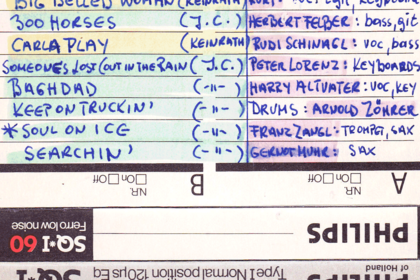 BIG BELLED WOMAN (KEINRATH)
300 HORSES (J.C.) HERBERT FELBER: bass, git
CARLA PLAY (KEINRATH) RUDI SCHINAGL: voc, bass
SOMEONE'S LOST (OUT IN THE RAIN (J.C.) PETER LORENZ: KEYBOARDS
BAGHDAD (-"-) HARRY ALTVATER: voc, key
KEEP ON TRUCKIN' (-"-) DRUMS: ARNOLD ZÖHRER
*SOUL ON ICE (-"-) FRANZ ZANGL: TROMPET, SAX
SEARCHIN' (-"-) GERNOT MUHR: SAX
A NR. On Off
B NR. On Off
PHILIPS
SQ·I 60
Ferro low noise
PHILIPS
of Holland
Type I Normal position 120µs Eq
SQ·I